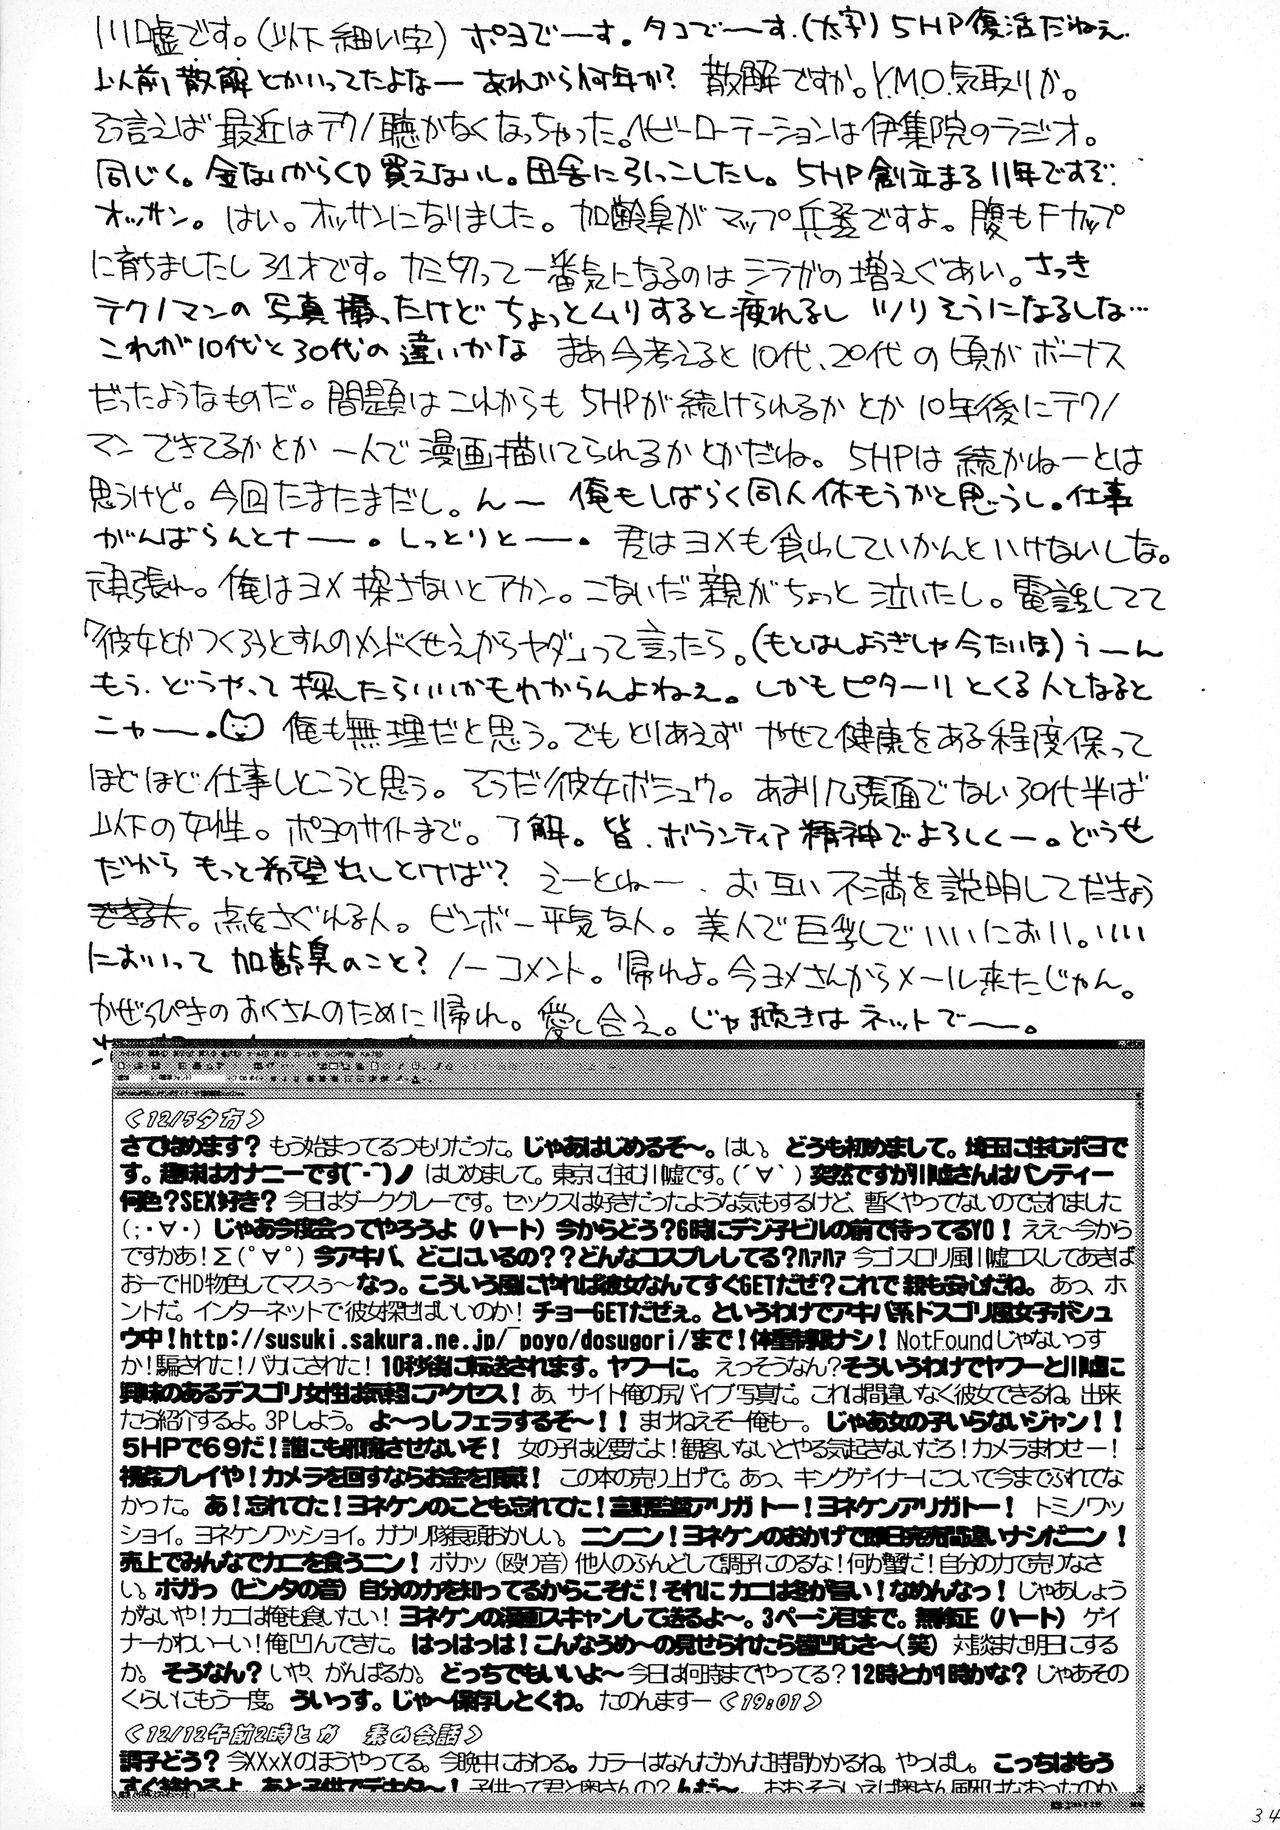 川嘘です。(以下細い字) ポヨでーす。タコでーす。(太字) 5HP復活だねぇ。
以前解散とかいってたよなー あれから何年か? 散解ですか。Y.M.O.気取りか。
そう言えば最近はテクノ聴かなくなっちゃった。ヘビーローテーションは伊集院のラジオ。
同じく。金ないからCD買えないし。田舎に引っこしたし。5HP創立まる11年ですぞ。
オッサン。はい。オッサンになりました。加齢臭がマップ兵器ですよ。腹もFカップ
に育ちましたし31才です。カミ切って一番気になるのはシラガの増えぐあい。さっき
テクノマンの写真撮ったけどちょっとムリすると疲れるし ツりそうになるしな…
これが10代と30代の違いかな まあ今考えると10代、20代の頃がボーナス
だったようなものだ。問題はこれからも5HPが続けられるかとか10年後にテクノ
マンできてるかとか一人で漫画描いてられるかとかだね。5HPは続かねーとは
思うけど。今回たまたまだし。ん～ 俺もしばらく同人休もうかと思うし。仕事
がんばらんとナー。しっとりとー。君はヨメも食わしていかんといけないしな。
頑張れ。俺はヨメ探さないとアカン。こないだ親がちょっと泣いたし。電話してて
「彼女とかつくろうとすんのメンドくせえからヤダ」って言ったら。(もとはしようぎしゃ今たいほ) うーん
もう、どうやって探したらいいかもわからんよねぇ。しかもピターリとくる人となると
ニャー。俺も無理だと思う。でもとりあえず やせて健康をある程度保って
ほどほど仕事しとこうと思う。そうだ彼女ボシュウ。あまり几張面でない30代半ば
以下の女性。ポヨのサイトまで。了解。皆、ボランティア精神でよろしくー。どうせ
だからもっと希望出しとけば? えーとねー、お互い不満を説明してだきょう
できる人。点をさぐれる人。ビンボー平気な人。美人で巨乳しでいいにおい。いい
においって加齢臭のこと? ノーコメント。帰れよ。今ヨメさんからメール来たじゃん。
かぜっぴきのおくさんのために帰れ。愛し合え。じゃ続きはネットでー。
<12/5夕方>
さて始めます? もう始まってるつもりだった。じゃあはじめるぞ～。はい。どうも初めまして。埼玉に住むポヨで
す。趣味はオナニーです(ｰ-ｰ)ノ はじめまして。東京に住む川嘘です。(´∀`) 突然ですが川嘘さんはパンティー
何色?SEX好き? 今日はダークグレーです。セックスは好きだったような気もするけど、暫くやってないので忘れました
(;・∀・) じゃあ今度会ってやろうよ (ハート) 今からどう?6時にデジ子ビルの前で待ってるYO! ええ～今から
ですかあ!Σ(ﾟ∀ﾟ) 今アキバ、どこにいるの??どんなコスプレしてる?ﾊｧﾊｧ 今ゴスロリ風川嘘コスしてあきば
おーでHD物色してマスぅ～ なっ。こういう風にやれば彼女なんてすぐGETだぜ?これで 親も安心だね。あっ、ホ
ントだ。インターネットで彼女探せばいいのか! チョーGETだぜぇ。というわけでアキバ系ドスゴリ風女子ボシュ
ウ中!http://susuki.sakura.ne.jp/~poyo/dosugori/まで!体重制限ナシ! NotFoundじゃないっす
か!騙された!バカにされた! 10秒後に転送されます。ヤフーに。えっそうなん?そういうわけでヤフーと川嘘に
興味のあるデスゴリ女性は気軽にアクセス! あ、サイト俺の尻バイブ写真だ。これは間違いなく彼女できるね。出来
たら紹介するよ。3Pしよう。よ～っしフェラするぞ～!! まけねえぞー俺もー。じゃあ女の子いらないジャン!!
5HPで69だ!誰にも邪魔させないぞ! 女の子は必要だよ!観客いないとやる気起きないだろ!カメラまわせー!
視姦プレイや!カメラを回すならお金を頂戴! この本の売り上げで。あっ、キングゲイナーについて今までふれてな
かった。あ!忘れてた!ヨネケンのことも忘れてた!富野監督アリガトー!ヨネケンアリガトー! トミノワッ
ショイ。ヨネケンワッショイ。ガウリ隊長頭おかしい。ニンニン!ヨネケンのおかげで昨日完売間違いナシだニン!
売上でみんなでカニを食うニン! ボカッ (殴り音) 他人のふんどしで調子にのるな!何が蟹だ!自分の力で売りなさ
い。ボガっ (ビンタの音) 自分の力を知ってるからこそだ!それに カニは冬が旨い!なめんなっ! じゃあしょう
がないや!カニは俺も食いたい! ヨネケンの漫画スキャンして送るよ～。3ページ目まで。無修正 (ハート) ゲイ
ナーかわいーい!俺凹んできた。はっはっは!こんなうめ～の見せられたら皆凹むさ～(笑) 対談また明日にする
か。そうなん? いや、がんばるか。どっちでもいいよ～ 今日は何時までやってる?12時とか1時かな? じゃあその
くらいにもう一度。ういっす。じゃ～保存しとくわ。たのんますー <19:01>
<12/12午前2時とか 素の会話>
調子どう? 今XXxXのほうやってる。今晩中におわる。カラーはなんだかんだ時間かかるね。やっぱし。こっちはもう
すぐ終わるよ。あと子供でデキタ～! 子供って君と奥さんの?んだ～ おおそういえば奥さん風邪はなおったのか
34